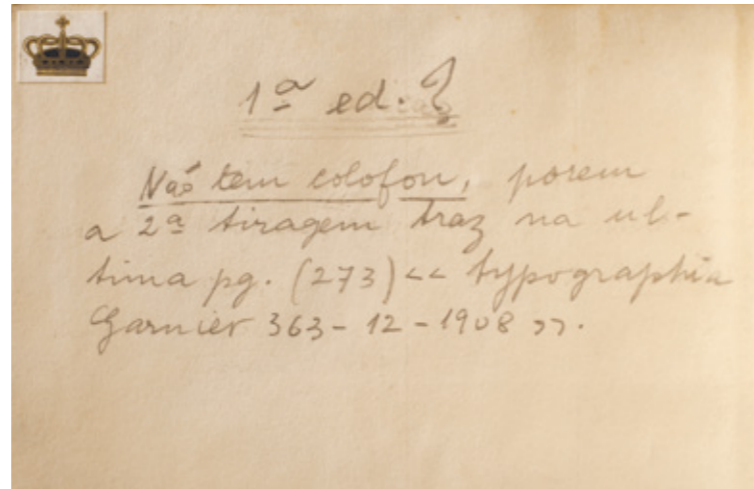 1ª ed. ?
Não tem colofon, porem
a 2ª tiragem traz na ul-
tima pg. (273) << typographia
Garnier 363-12-1908 >>.